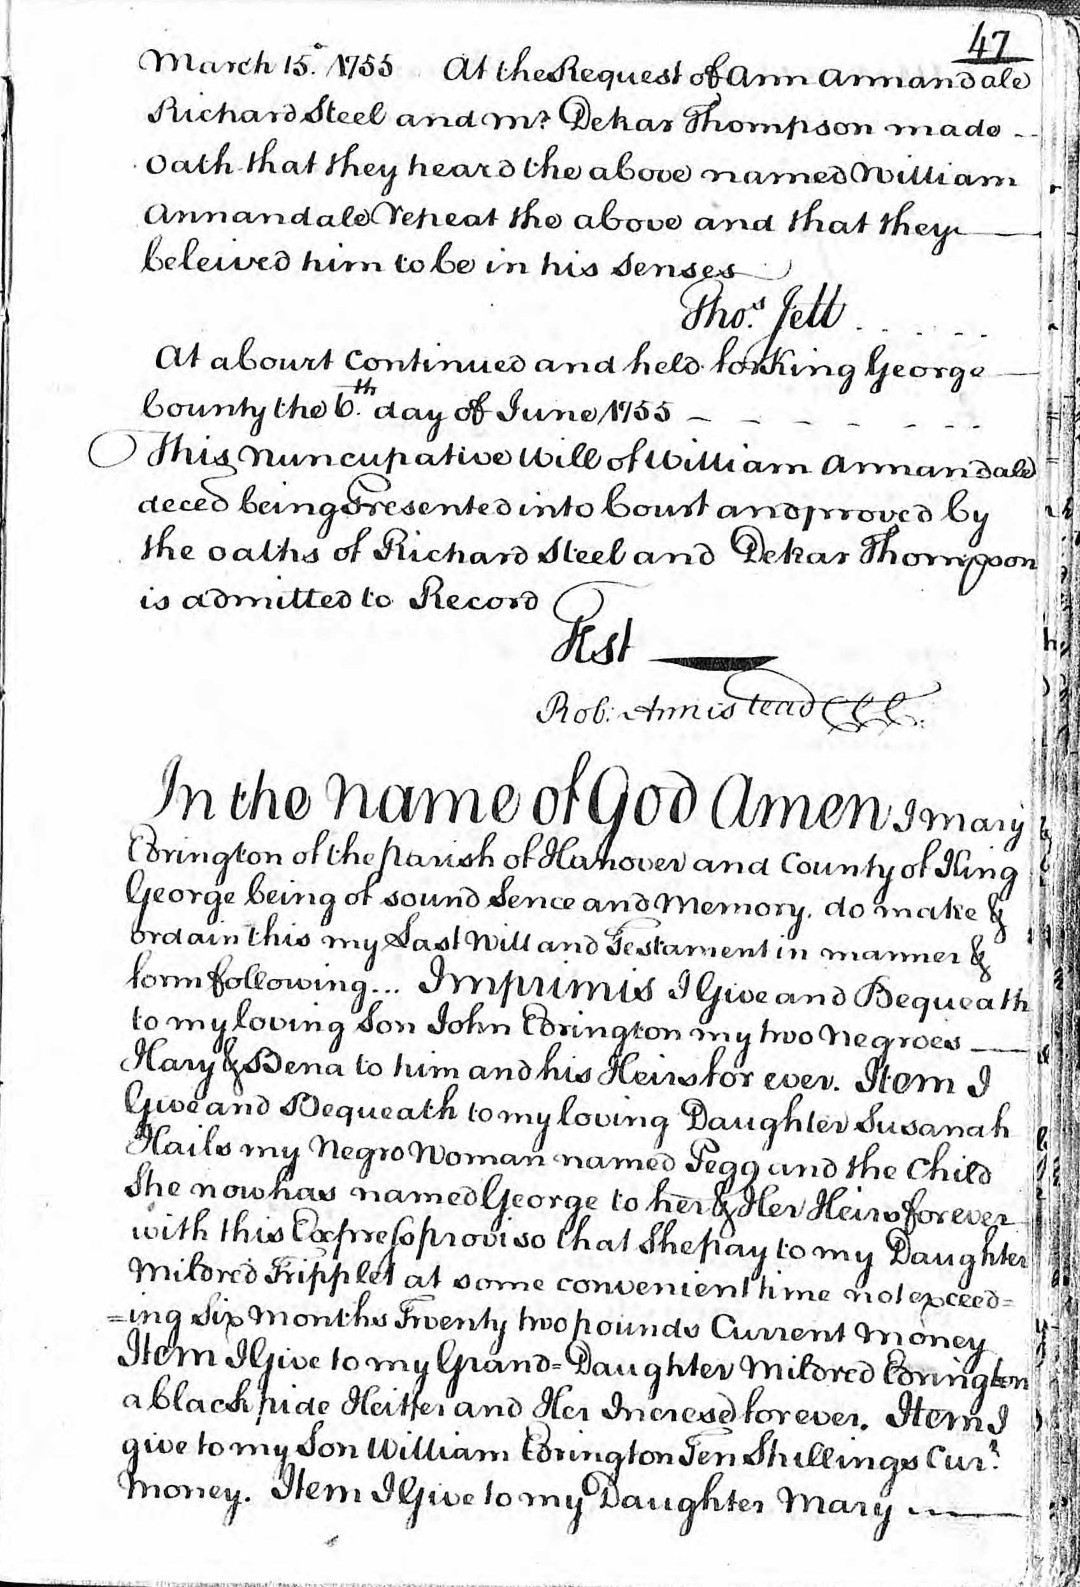 47
March 15.° 1755 At the Request of Ann Annandale
Richard Steel and Mr. Dekar Thompson made
Oath that they heard the above named William
Annandale repeat the above and that they
beleived him to be in his Senses
Thos. Jett
At a Court Continued and held for King George
County the 6.th day of June 1755
This Nuncupative Will of William Annandale
deced being Presented into Court and proved by
the oaths of Richard Steel and Dekar Thompson
is admitted to Record
Test
Rob: Armistead CCC.
In the Name of God Amen I Mary
Edrington of the parish of Hanover and County of King
George being of sound Sence and Memory. do make &
ordain this my Last Will and Testament in manner &
form following... Imprimis I Give and Bequeath
to my loving Son John Edrington my two Negroes
Hary & Bena to him and his Heirs for ever. Item I
Give and Bequeath to my loving Daughter Susanah
Hails my Negro Woman named Pegg and the Child
She now has named George to her & Her Heirs for ever
with this Express proviso that She pay to my Daughter
Mildred Tripplet at some convenient time not exceed=
=ing Six Months Twenty two pounds Current Money
Item I Give to my Grand=Daughter Mildred Edrington
a black pide Heiffer and Her Increse for ever. Item I
give to my Son William Edrington Ten Shillings Curr.
Money. Item I Give to my Daughter Mary